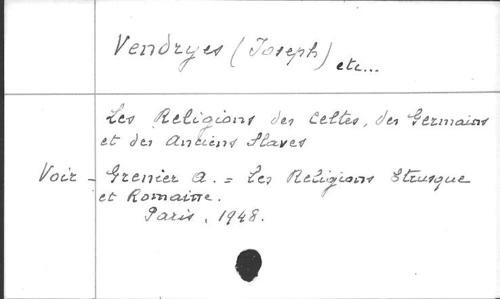 Vendryes (Joseph) etc...
Les Religions des Celtes, des Germains
et des Anciens Slaves
Voir - Grenier A. = Les Religions Etrusque
et Romaine.
Paris, 1948.